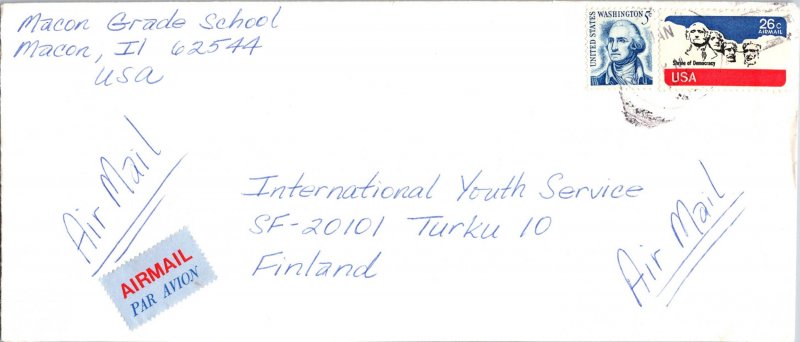 Macon Grade School
Macon, Il 62544
USA
UNITED STATES
WASHINGTON 5¢
26c
AIRMAIL
Shrine of Democracy
USA
AN
Air Mail
AIRMAIL
PAR AVION
International Youth Service
SF-20101 Turku 10
Finland
Air Mail